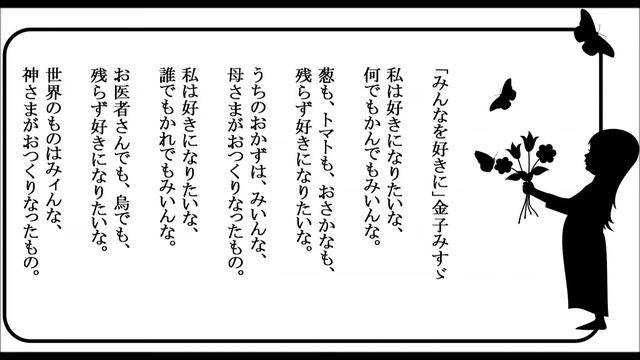 「みんなを好きに」金子みすゞ
私は好きになりたいな、
何でもかんでもみいんな。
葱も、トマトも、おさかなも、
残らず好きになりたいな。
うちのおかずは、みいんな、
母さまがおつくりなったもの。
私は好きになりたいな、
誰でもかれでもみいんな。
お医者さんでも、烏でも、
残らず好きになりたいな。
世界のものはみィんな、
神さまがおつくりなったもの。